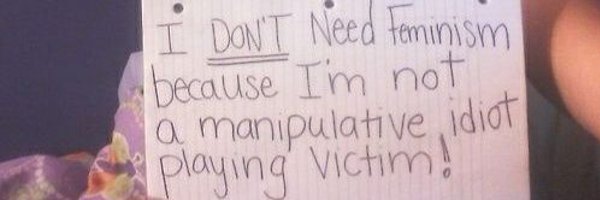 I DON'T Need Feminism
because I'm not
a manipulative idiot
playing victim!